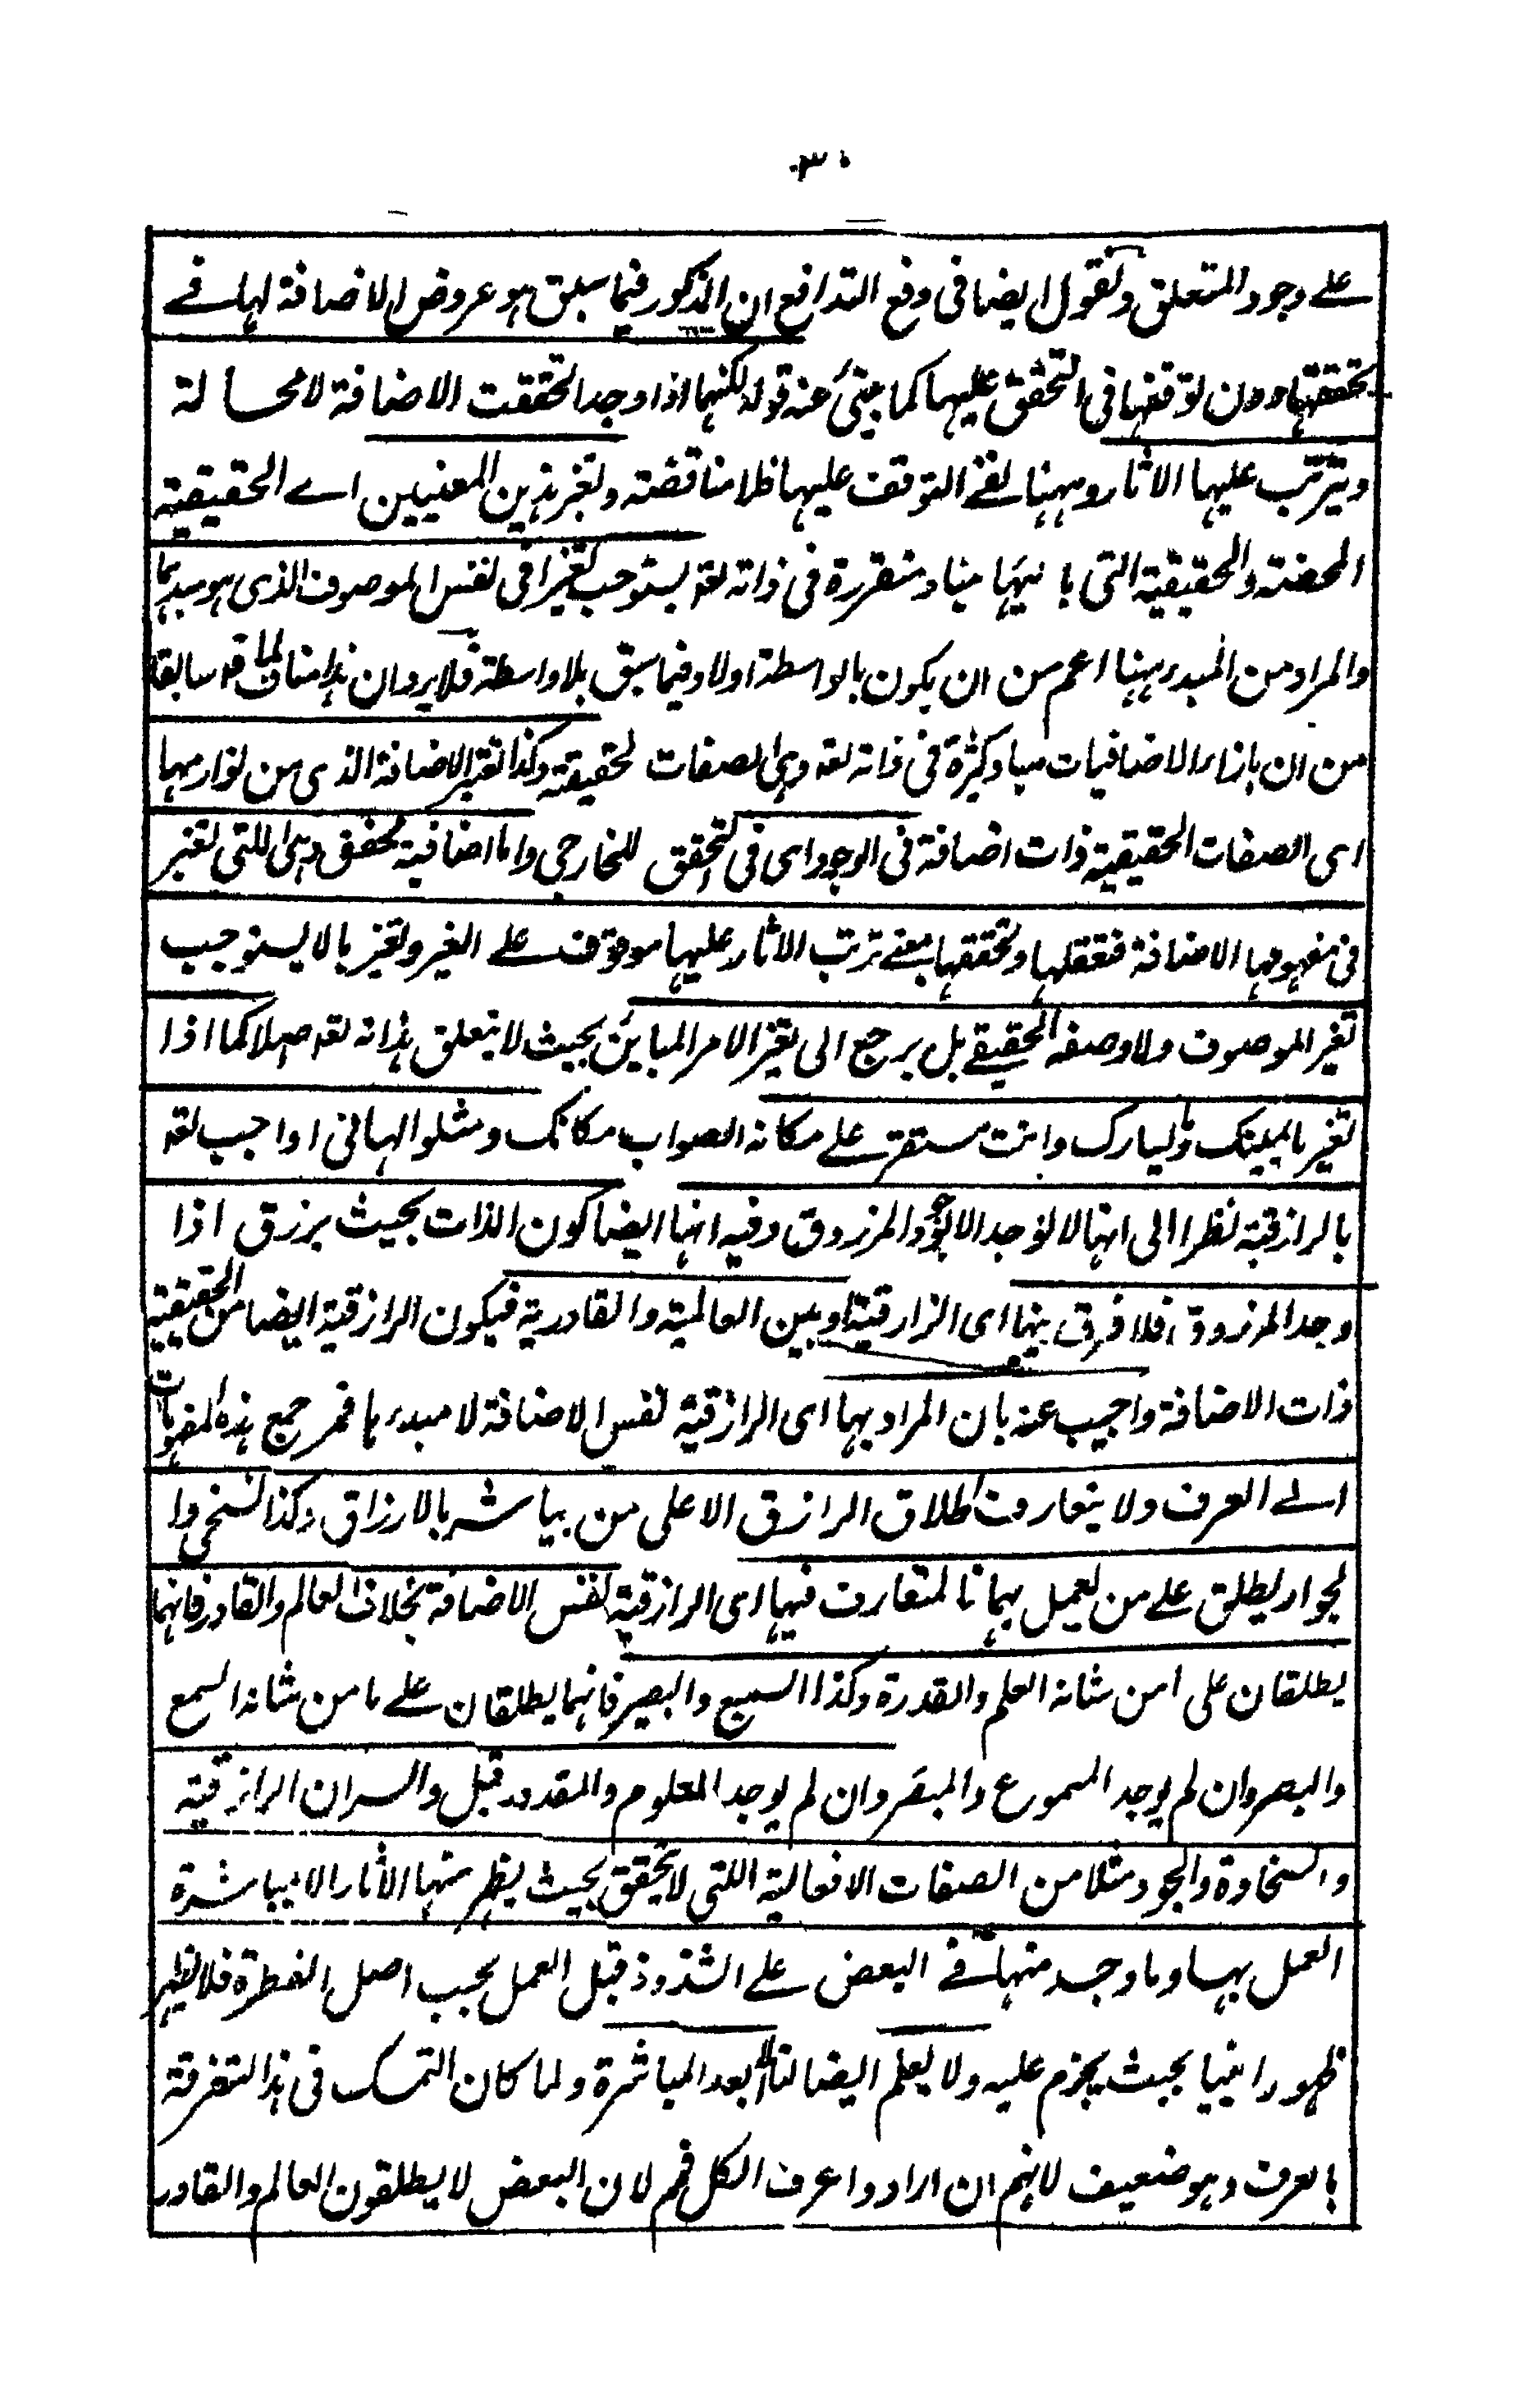 ٣٠
على وجود المتعلق ونقول ايضا فى دفع التدافع ان المذكور فيما سبق هو عروض الاضافة لها فى
تحققها دون توقفها فى التحقق عليها كما ينبئ عنه قوله لكنها اذا وجد تحققت الاضافة لا محالة
ويترتب عليها الاثار وههنا نفى التوقف عليها فلا مناقضة وتغير هذين المعنيين اے الحقيقية
المحضة والحقيقية التى بازائها مباد متقررة فى ذاته تعه يستوجب تغيرا فى نفس الموصوف الذى هو مبدئها
والمراد من المبدء ههنا اعم من ان يكون بالواسطة اولا وفيما سبق بلا واسطة فلا يرد ان هذا مناف لما قد سابقا
من ان بازاء الاضافيات مباد كثيرة فى ذاته تعه وهى الصفات لحقيقة وكذا تغير الاضافة الذى من لوازمها
اى الصفات الحقيقية ذات اضافة فى الوجود اى فى التحقق للخارجى واما اضافية محضة وهى اللتى تعتبر
فى مفهومها الاضافة فتعقلها وتحققها بمعنى ترتب الاثار عليها موقوف على الغير وتغيرها لا يستوجب
تغير الموصوف ولا وصفه الحقيقے بل يرجع الى تغير الامر المباين بحيث لا يتعلق بذاته تعه اصلا كما اذا
تغير ما بيمينك وليسارك وانت مستقر على مكانه الصواب مكانك ومثلوا لها فى اواجب تعه
بالرازقية نظرا الى انها لا توجد الا بوجود المرزوق وفيه انها ايضا كون الذات بحيث يرزق اذا
وجد المرزوق فلا فرق بينها اى الرازقية وبين العالمية والقادرية فيكون الرازقية ايضا من الحقيقية
ذات الاضافة واجيب عنه بان المراد بها اى الرازقية نفس الاضافة لا مبدءها فمرجع هذه المفهومات
الے العرف ولا يتعارف اطلاق الرازق الا على من يباشر بالارزاق وكذا السخى وا
لجواد يطلق على من يعمل بهما فالمتعارف فيها اى الرازقية نفس الاضافة بخلاف العالم والقادر فانهما
يطلقان على امن شانه العلم والقدرة وكذا السميع والبصير فانهما يطلقان على ما من شانه السمع
والبصر وان لم يوجد المسموع والمبصر وان لم يوجد المعلوم والمقدور قبل والسر ان الرازقية
والسخاوة والجود مثلا من الصفات الافعالية اللتى لا يتحقق بحيث يظهر منها الاثار الا بمباشرة
العمل بها وما وجد منها فى البعض على الشذوذ قبل العمل بحسب اصل الفطرة فلا يظهر
ظهورا بينا بحيث يجزم عليه ولا يعلم ايضا لنا الا بعد المباشرة ولما كان التمسك فى هذا التفرقة
بالعرف وهو ضعيف لانهم ان ارادوا عرف الكل فمم لان البعض لا يطلقون العالم والقادر